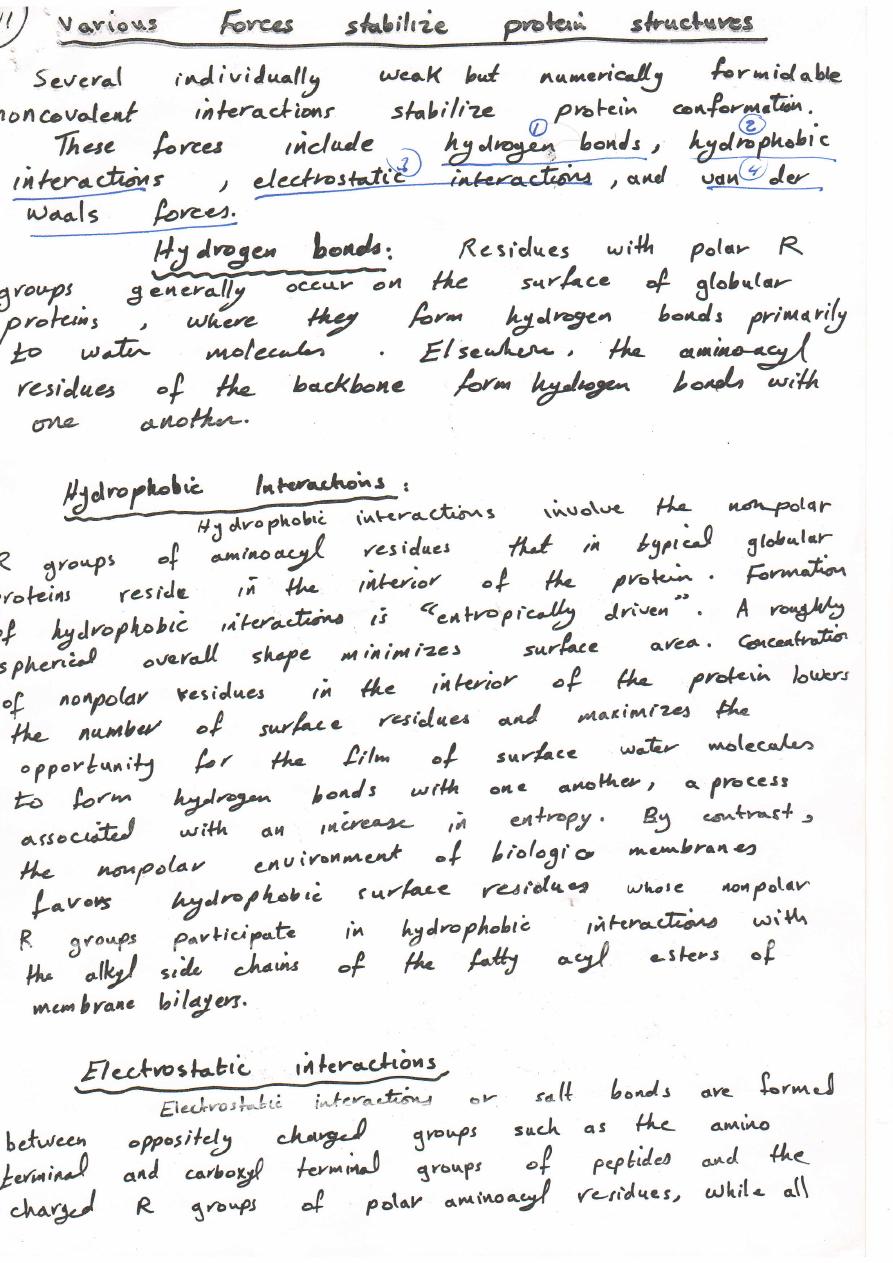 11)
Various Forces stabilize protein structures
Several individually weak but numerically formidable
noncovalent interactions stabilize protein conformation.
These forces include hydrogen bonds, hydrophobic
① ②
interactions, electrostatic interactions, and van der
③ ④
waals forces.
Hydrogen bonds: Residues with polar R
groups generally occur on the surface of globular
proteins, where they form hydrogen bonds primarily
to water molecules. Elsewhere, the aminoacyl
residues of the backbone form hydrogen bonds with
one another.
Hydrophobic Interactions:
Hydrophobic interactions involve the nonpolar
R groups of aminoacyl residues that in typical globular
proteins reside in the interior of the protein. Formation
of hydrophobic interactions is "entropically driven". A roughly
spherical overall shape minimizes surface area. Concentration
of nonpolar residues in the interior of the protein lowers
the number of surface residues and maximizes the
opportunity for the film of surface water molecules
to form hydrogen bonds with one another, a process
associated with an increase in entropy. By contrast,
the nonpolar environment of biologic membranes
favors hydrophobic surface residues whose nonpolar
R groups participate in hydrophobic interactions with
the alkyl side chains of the fatty acyl esters of
membrane bilayers.
Electrostatic interactions
Electrostatic interactions or salt bonds are formed
between oppositely charged groups such as the amino
terminal and carboxyl terminal groups of peptides and the
charged R groups of polar aminoacyl residues, while all